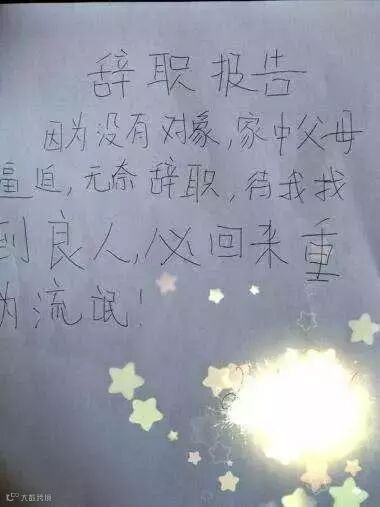 辞职报告
因为没有对象,家中父母
逼迫,无奈辞职,待我找
到良人,必回来重
为流氓!
大数跨境